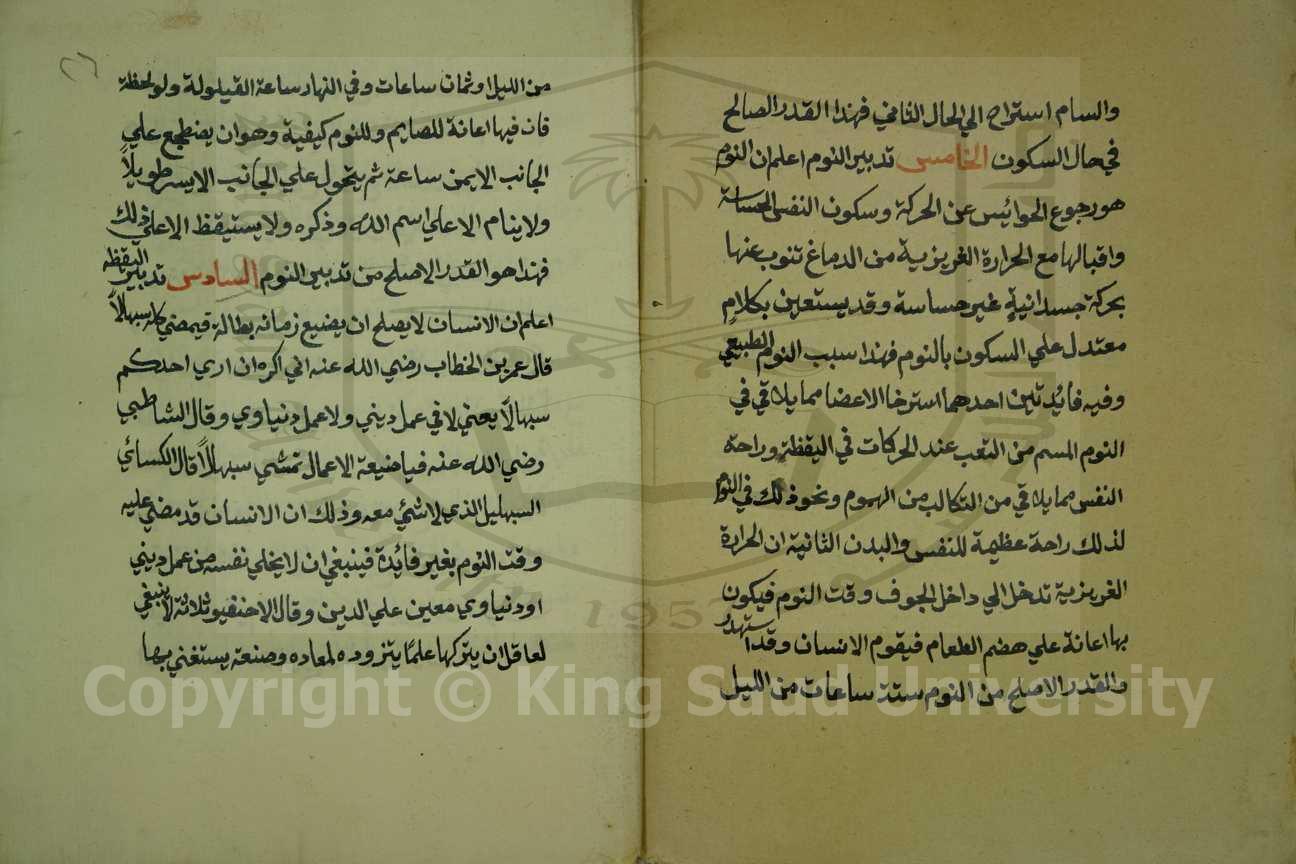 والسام استراح الي الحال الثاني فهذا القدر الصالح
في حال السكون الخامس تدبير النوم اعلم ان النوم
هو رجوع الحوائس عن الحركة وسكون النفس الحساسة
واقبالها مع الحرارة الغريزية من الدماغ تنوب عنها
بحركة جسدانية غير حساسة وقد يستعين بكلام
معتدل علي السكون بالنوم فهذا سبب النوم الطبيعي
وفيه فائدتين احدهما استرخا الاعضا مما يلاقي في
النوم المسم من التعب عند الحركات في اليقظة وراحة
النفس مما يلاقي من التكالب من الهموم ونحو ذلك في النوم
لذلك راحة عظيمة للنفس والبدن الثانية ان الحرارة
الغريزية تدخل الي داخل الجوف وقت النوم فيكون
بها اعانة علي هضم الطعام فيقوم الانسان وقد
والقدر الاصلح من النوم ستة ساعات من الليل
٢٦
من الليل او ثمان ساعات وفي النهار ساعة القيلولة ولو لحظة
فان فيها اعانة للصايم وللنوم كيفية وهو ان يضطجع علي
الجانب الايمن ساعة ثم يتحول علي الجانب الايسر طويلاً
ولا ينام الا علي اسم الله وذكره ولا يستيقظ الا علي ذلك
فهذا هو القدر الاصلح من تدبير النوم السادس تدبير اليقظه
اعلم ان الانسان لا يصلح ان يضيع زمانه بطالة فيمضي كله سبهلاً
قال عمر بن الخطاب رضي الله عنه اني اكره ان اري احدكم
سبهالاً يعني لا في عمل ديني ولا عمل دنياوي وقال الشاطبي
رضي الله عنه فيا ضيعة الاعمال تمشي سبهللاً قال الكسائي
السبهليل الذي لا شئي معه وذلك ان الانسان قد مضي عليه
وقت النوم بغير فائدة فينبغي ان لا يخلي نفسه من عمل ديني
او دنياوي معين علي الدين وقال الاحنفيو ثلاثة لا ينبغي
لعاقل ان يتركها علمًا يتزوده لمعاده وصنعة يستغني بها
1957
Copyright © King Saud University